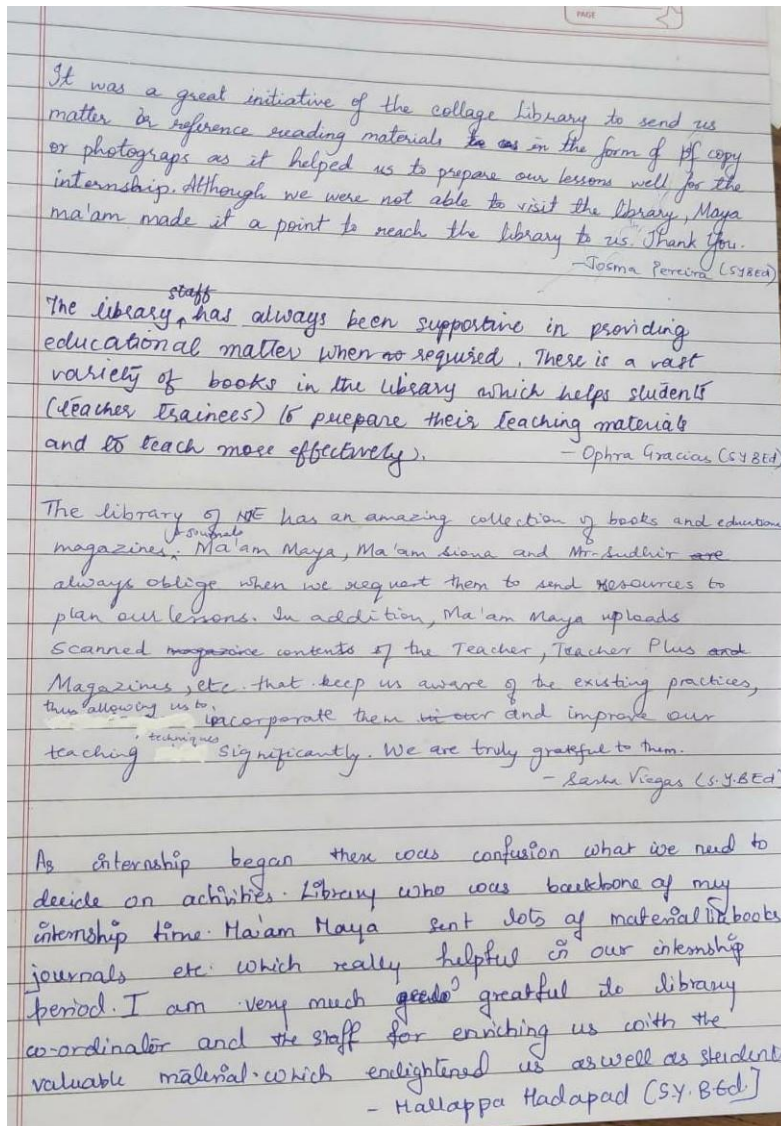 PAGE
It was a great initiative of the collage Library to send us
matter or reference reading materials in the form of pf copy
or photograps as it helped us to prepare our lessons well for the
internship. Although we were not able to visit the library, Maya
ma'am made it a point to reach the library to us. Thank You.
- Josma Pereira (SYBEd)
The library staff has always been supportive in providing
educational matter when required. There is a vast
variety of books in the library which helps students
(teacher trainees) to prepare their teaching materials
and to teach more effectively).
- Ophra Gracias (SYBEd)
The library of NIE has an amazing collection of books and education
magazines, journals. Ma'am Maya, Ma'am Siona and Mr. Sudhir
always oblige when we request them to send resources to
plan our lessons. In addition, Ma'am Maya uploads
scanned contents of the Teacher, Teacher Plus
Magazines, etc. that keep us aware of the existing practices,
thus allowing us to incorporate them and improve our
teaching techniques significantly. We are truly grateful to them.
- Sasha Viegas (S.Y.BEd)
As internship began there was confusion what we need to
decide on activities. Library who was backbone of my
internship time. Ma'am Maya sent lots of material books
journals etc. which really helpful in our internship
period. I am very much greatful to library
co-ordinator and the staff for enriching us with the
valuable material. which enlightened us aswell as student
- Mallappa Hadapad [S.Y. B.Ed.]